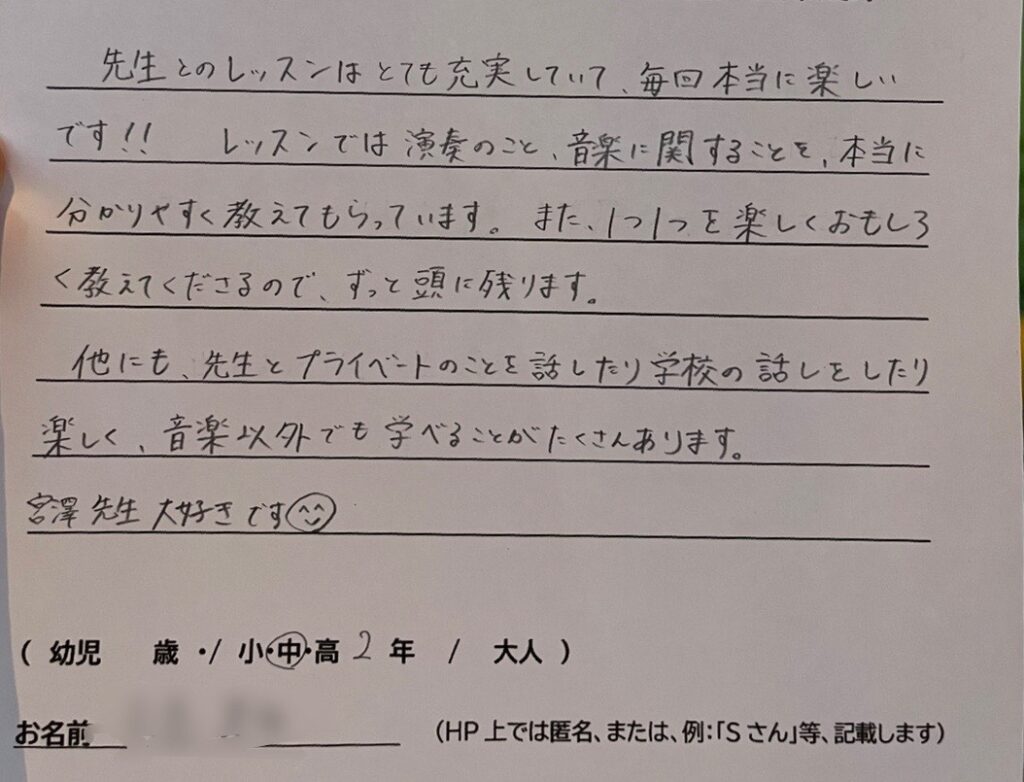 先生とのレッスンはとても充実していて、毎回本当に楽しい
です!! レッスンでは演奏のこと、音楽に関することを、本当に
分かりやすく教えてもらっています。また、1つ1つを楽しくおもしろ
く教えてくださるので、ずっと頭に残ります。
他にも、先生とプライベートのことを話したり学校の話しをしたり
楽しく、音楽以外でも学べることがたくさんあります。
宮澤先生大好きです
( 幼児 歳 ・/ 小・中・高 2 年 / 大人 )
お名前 (HP上では匿名、または、例:「Sさん」等、記載します)